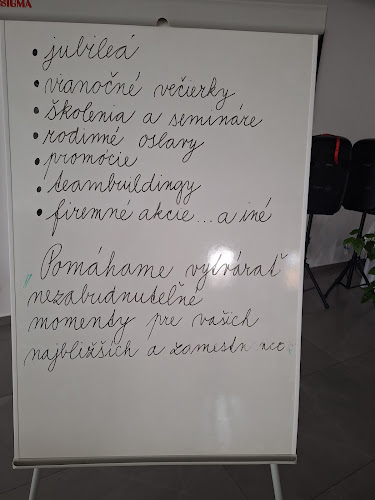 SIGMA
• jubileá
• vianočné večierky
• školenia a semináre
• rodinné oslavy
• promócie
• teambuildingy
• firemné akcie...a iné
"Pomáhame vytvárať
nezabudnuteľné
momenty pre vašich
najbližších a